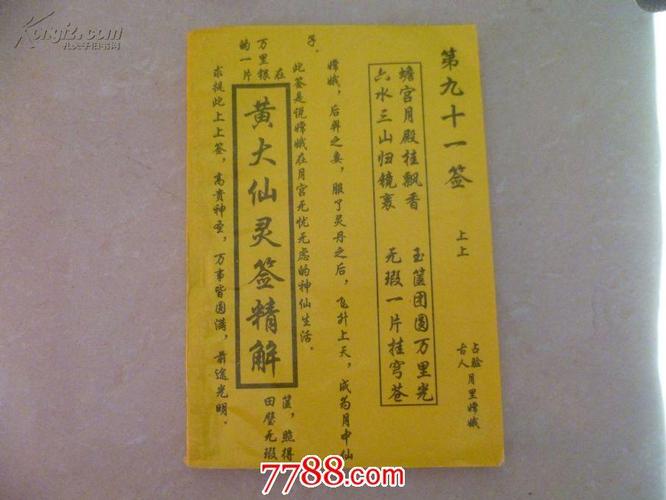 第九十一签
上上
古人
占验
月里嫦娥
蟾宫月殿桂飘香
玉篋团圆万里光
六水三山归镜裏
无瑕一片挂穹苍
嫦娥，后羿之妻，服了灵丹之后，飞升上天，成为月中仙
子。
此签是说嫦娥在月宫无忧无虑的神仙生活。
万里银在
的一片
篋，照得
田壁无瑕
求徒此上上签，高贵神圣，万事皆圆满，前途光明。
黄大仙灵签精解
Kongfz.com
孔夫子旧书网
7788.com